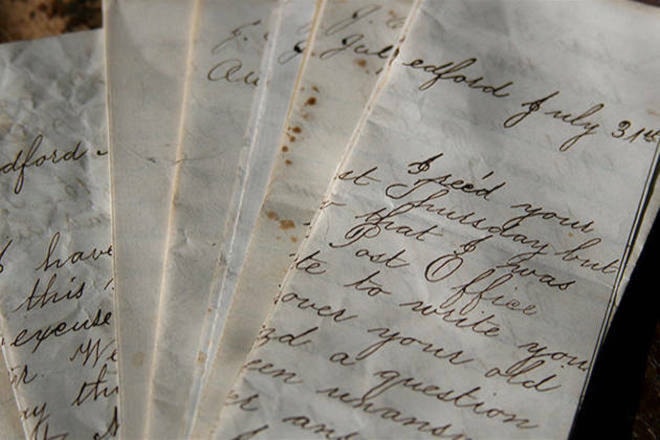 dford
I have
this
excuse
We
Au
Jul
edford July 31st
I rec'd your
st Thursday but
that I was
Post Office
te to write you
over your old
zd a question
een unansw
er an